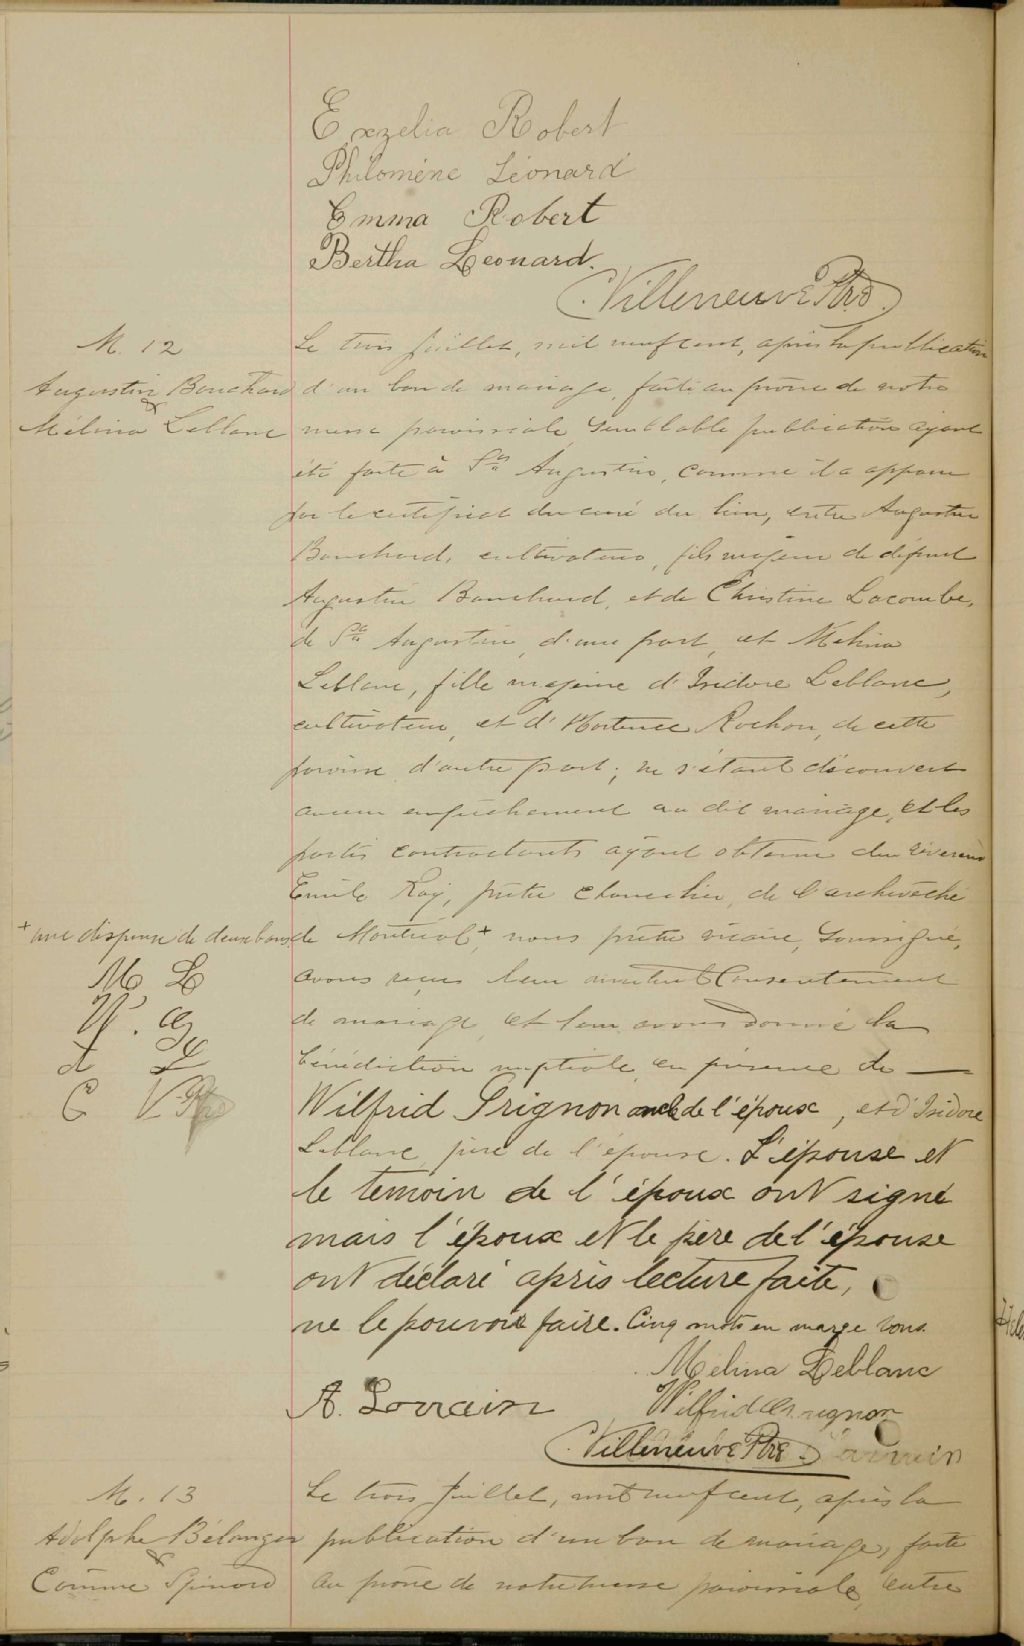 Exzelia Robert
Philomène Léonard
Emma Robert
Bertha Leonard.
Villeneuve Ptre.
M. 12
Augustin Bouchard
&
Mélina Leblanc
Le trois Juillet, mil neuf cent, après la publication
d'un ban de mariage, faite au prône de notre
messe paroissiale, semblable publication ayant
été faite à Ste Augustin, comme il a apparu
par le certificat du curé du lieu, entre Augustin
Bouchard, cultivateur, fils majeur de défunt
Augustin Bouchard, et de Christine Lacombe,
de St Augustin, d'une part, et Melina
Leblanc, fille majeure d'Isidore Leblanc,
cultivateur, et d'Hortence Rochon, de cette
paroisse d'autre part; ne s'étant découvert
aucun empêchement au dit mariage, et les
parties contractants ayant obtenu du révérend
Emile Roy, prêtre chancelier, de l'archevêché
+ une dispense de deux bans
de Montréal+, nous prêtre vicaire, soussigné,
M L
W. G
A L
C V. Ptre
avons reçu leur mutuel consentement
de mariage, et leur avons donné la
bénédiction nuptiale en présence de —
Wilfrid Grignon oncle de l'époux, et d'Isidore
Leblanc père de l'épouse. L'épouse et
le temoin de l'époux ont signé
mais l'époux et le père de l'épouse
ont déclaré après lecture faite,
ne le pouvoir faire. Cinq mots en marge bons.
Mélina Leblanc
A. Lorrain
Wilfrid Grignon
Villeneuve Ptre.
M. 13
Adolphe Bélanger
&
Corinne Spinard
Le trois Juillet, mil neuf cent, après la
publication d'un ban de mariage, faite
au prône de notre messe paroissiale, entre